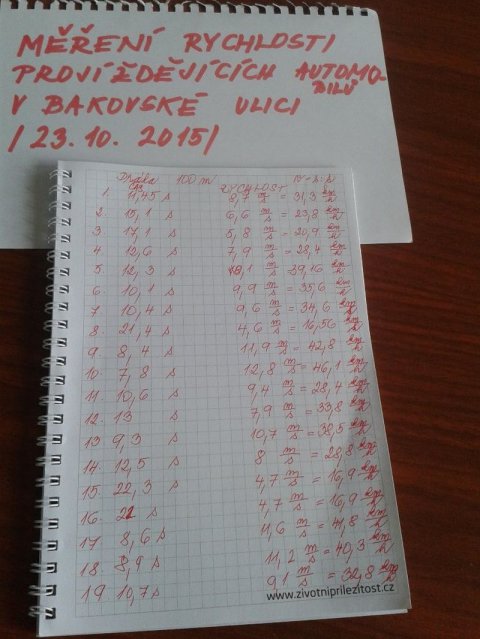 MĚŘENÍ RYCHLOSTI
PROVÍŽDĚVÍCÍCH AUTOMO-
BILŮ
V BAKOVSKÉ ULICI
/23.10.2015/
Dráha 100 m
ČAS RYCHLOST
1. 11,45 s 8,7 m/s = 31,3 km/h
2. 15,1 s 6,6 m/s = 23,8 km/h
3. 17,1 s 5,8 m/s = 20,9 km/h
4. 12,6 s 7,9 m/s = 28,4 km/h
5. 12,3 s 8,1 m/s = 29,16 km/h
6. 10,1 s 9,9 m/s = 35,6 km/h
7. 10,4 s 9,6 m/s = 34,6 km/h
8. 21,4 s 4,6 m/s = 16,56 km/h
9. 8,4 s 11,9 m/s = 42,8 km/h
10. 7,8 s 12,8 m/s = 46,1 km/h
11. 10,6 s 9,4 m/s = 28,4 km/h
12. 13 s 7,9 m/s = 33,8 km/h
13. 9,3 s 10,7 m/s = 38,5 km/h
14. 12,5 s 8 m/s = 28,8 km/h
15. 22,3 s 4,7 m/s = 16,9 km/h
16. 21 s 4,7 m/s = 16,9 km/h
17. 8,6 s 11,6 m/s = 41,8 km/h
18. 8,9 s 11,2 m/s = 40,3 km/h
19. 10,7 s 9,1 m/s = 32,8 km/h
www.zivotniprilezitost.cz